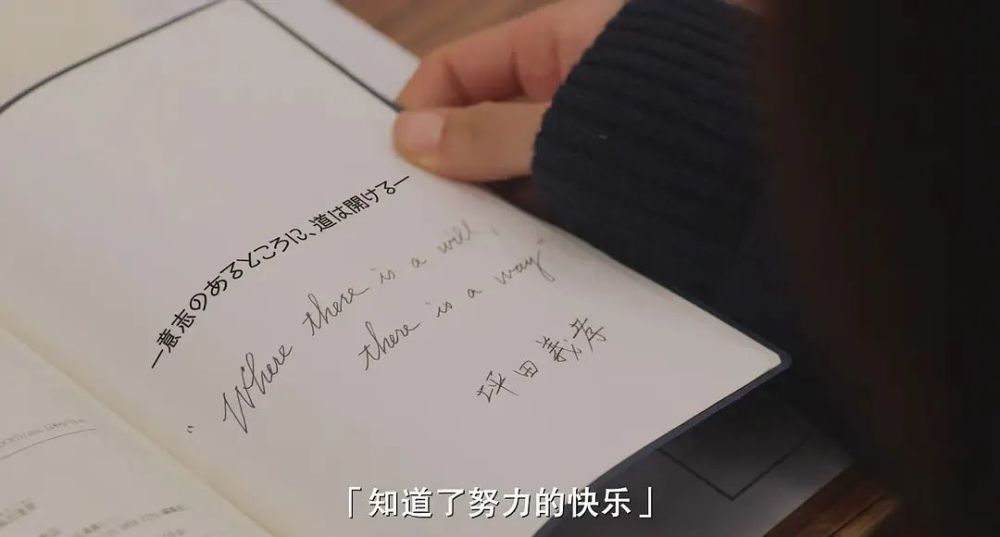 —意志のあるところに、道は開ける—
"Where there is a will,
there is a way"
坪田義孝
「知道了努力的快乐」